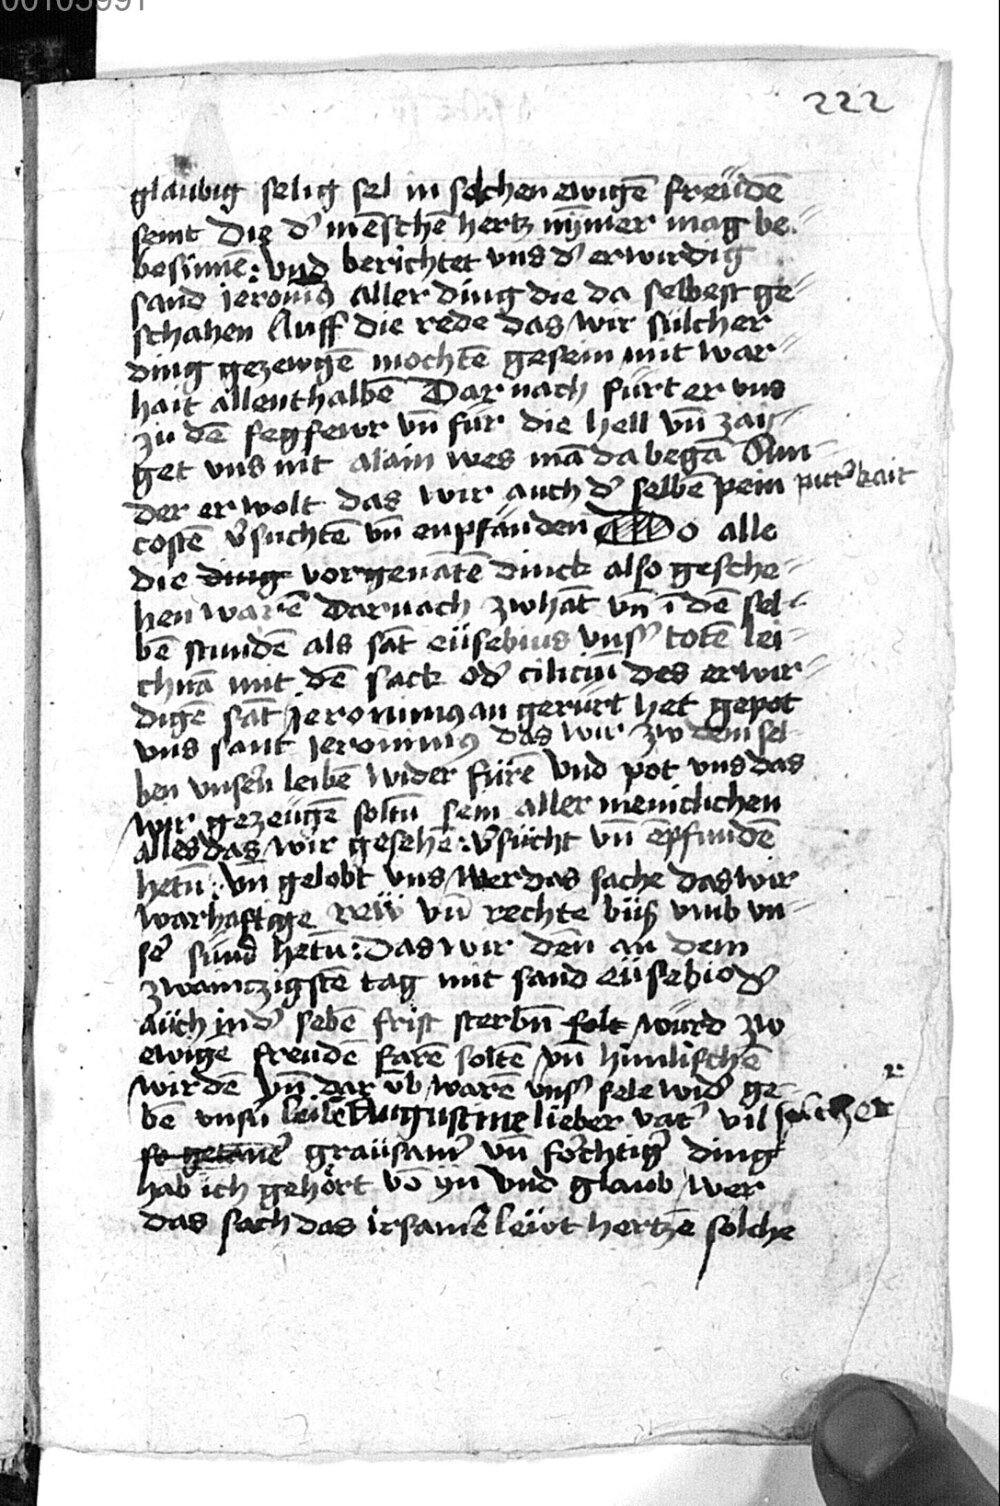 00103991
222
glaubig selig sel in solchen ewigē freüdē
seint Die d' mēschē hertz nȳmer mag be-
besinnē: vnd berichtet vns d' erwirdig
sand jeronim9 aller ding die da selbest ge-
schahen Auff die rede das wir sülcher
ding gezewgē mochtē gesein mit war-
hait allenthalbē Dar nach fürt er vns
zu dē fegfewr vn̄ für die hell vn̄ zai-
get vns nit alain wes mā da begā Sun-
der er wolt das wir auch d' selbē pein pitt'kait
costē v'suchtē vn̄ enpfanden Do alle
die ding vorgenātē dinck also gesche-
hen warē Darnach zwhāt vn̄ ī dē sel-
bē stundē als sāt eüsebius vnss' totē lei-
chnā mit dē sack od' ciliciū des erwir-
digē sāt Jeronimus an gerürt het gepot
vns sant jeronim9 das wir zw dem sel-
ben vnser̄n leibē wider fürē vnd pot vns das
wir gezeügē soltn̄ sein aller menicklichen
alles das wir gesehē: v'sücht vn̄ ēpfundē
hetn̄: vn̄ gelobt vns wer das sache das wir
warhaftige rew vn̄ rechte büß vmb vn-
se' sünd hetn̄: das wir den an dem
zwainczigstē tag mit sand eüsebio d'
auch in d' selbē frist sterbn̄ solt würd zw
ewigē freudē farē soltē vn̄ himlischē
wirdē vn̄ dar v̄b warē vnss' sele wid' ge-
bē vnsn̄ leibē Augustine lieber vat' vil solcher
so getāne' graüsam' vn̄ forchtig' ding
hab ich gehört vō yn vnd glaub wer
das sach das irsamē leüt hertzē solche